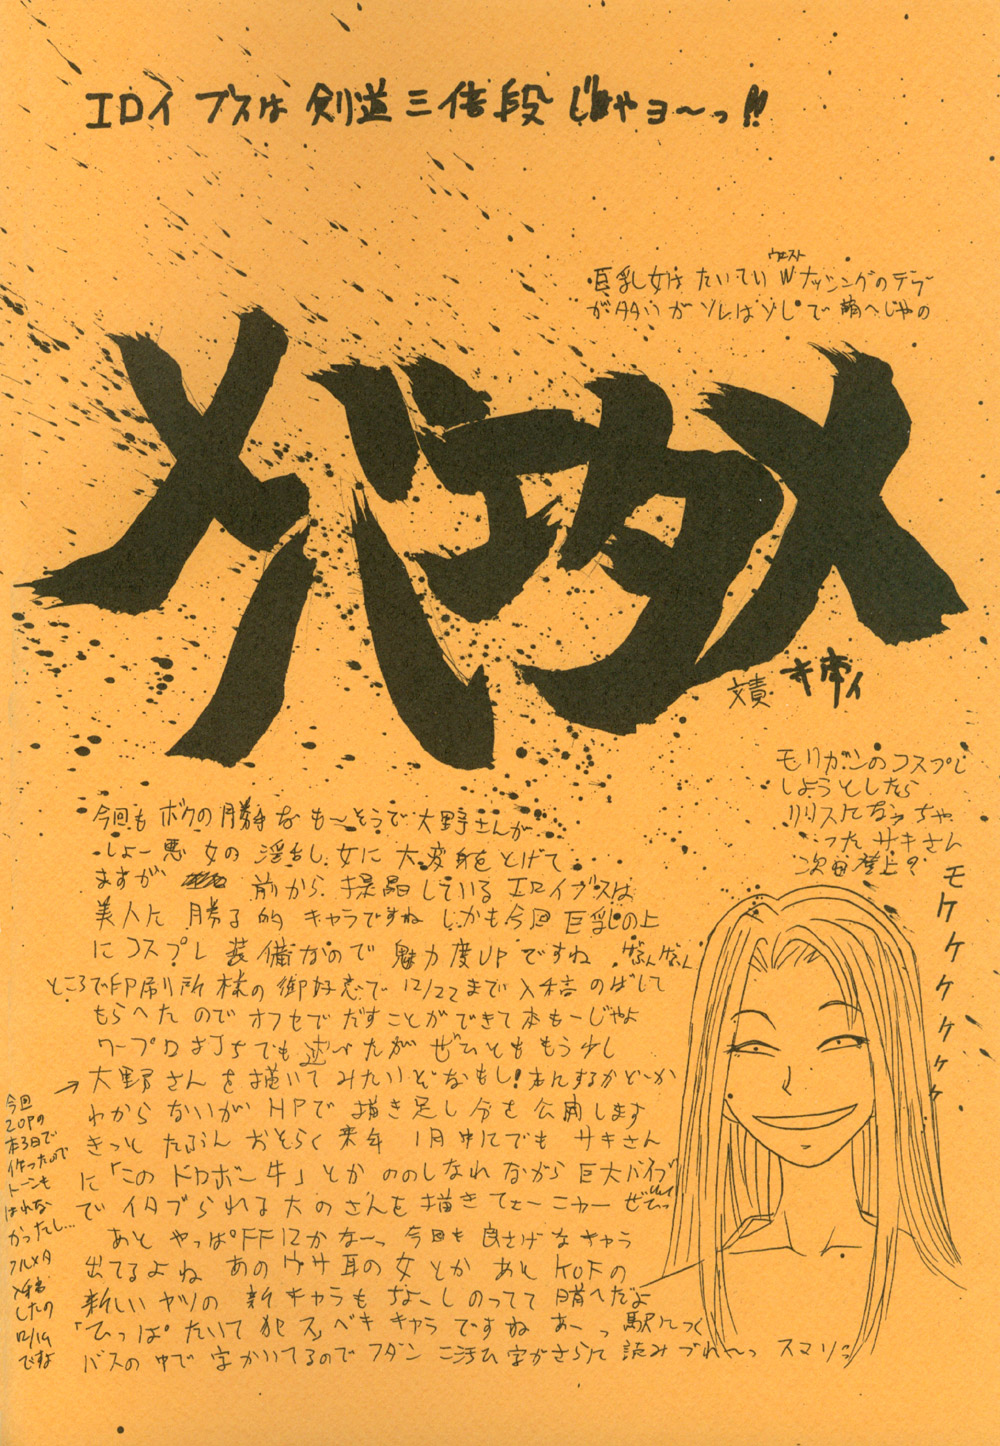 エロイ ブスは 剣道三倍段 じゃヨ〜っ!!
ウエスト
巨乳女は たいてい Wナッシングのデブ
が多いが ソレはソレで 萌へじゃの
メバエタメ
文責
モリガンのコスプレ
しようとしたら
リリスになっちゃ
った サキさん
次回登上?
モケケケケケケ
今回も ボクの勝手な も〜そうで 大野さんが
しょー悪女の 淫乱女に 大変身をとげて
ますが 前から 提唱している エロイブスは
美人に 勝る的 キャラですね しかも今回 巨乳の上
に コスプレ 装備なので 魅力度UPですね
ところで印刷所様の御好意で 12/22まで入稿 のばして
もらへたのでオフセでだすことができて本もーじゃよ
ワープロ打ちでも述べたが ぜひとももう少し
→大野さんを描いてみたいぞなもし! 本にするかどーか
わからないが HPで 描き足し分を公開します
きっと たぶん おそらく 来年 1月中にでも サキさん
に「このドロボー牛」とか ののしなれながら 巨大バイブ
で イタブられる大のさんを描きてェーニャー
あと やっぱFF12かな〜っ 今回も良さげなキャラ
出てるよね あのウサ耳の女とか あと KOFの
新しいヤツの 新キャラも
「ひっぱたいて犯スベキキャラですね あーっ 駅につく
バスの中で字かいてるのでフダン ニ汚ひ字がさらに 読みづれ〜っ スマソっ
今回
20Pの
本3日で
作ったので
トーンも
はれな
かったし…
フルメタ
入稿
したの
12/14
ですよ